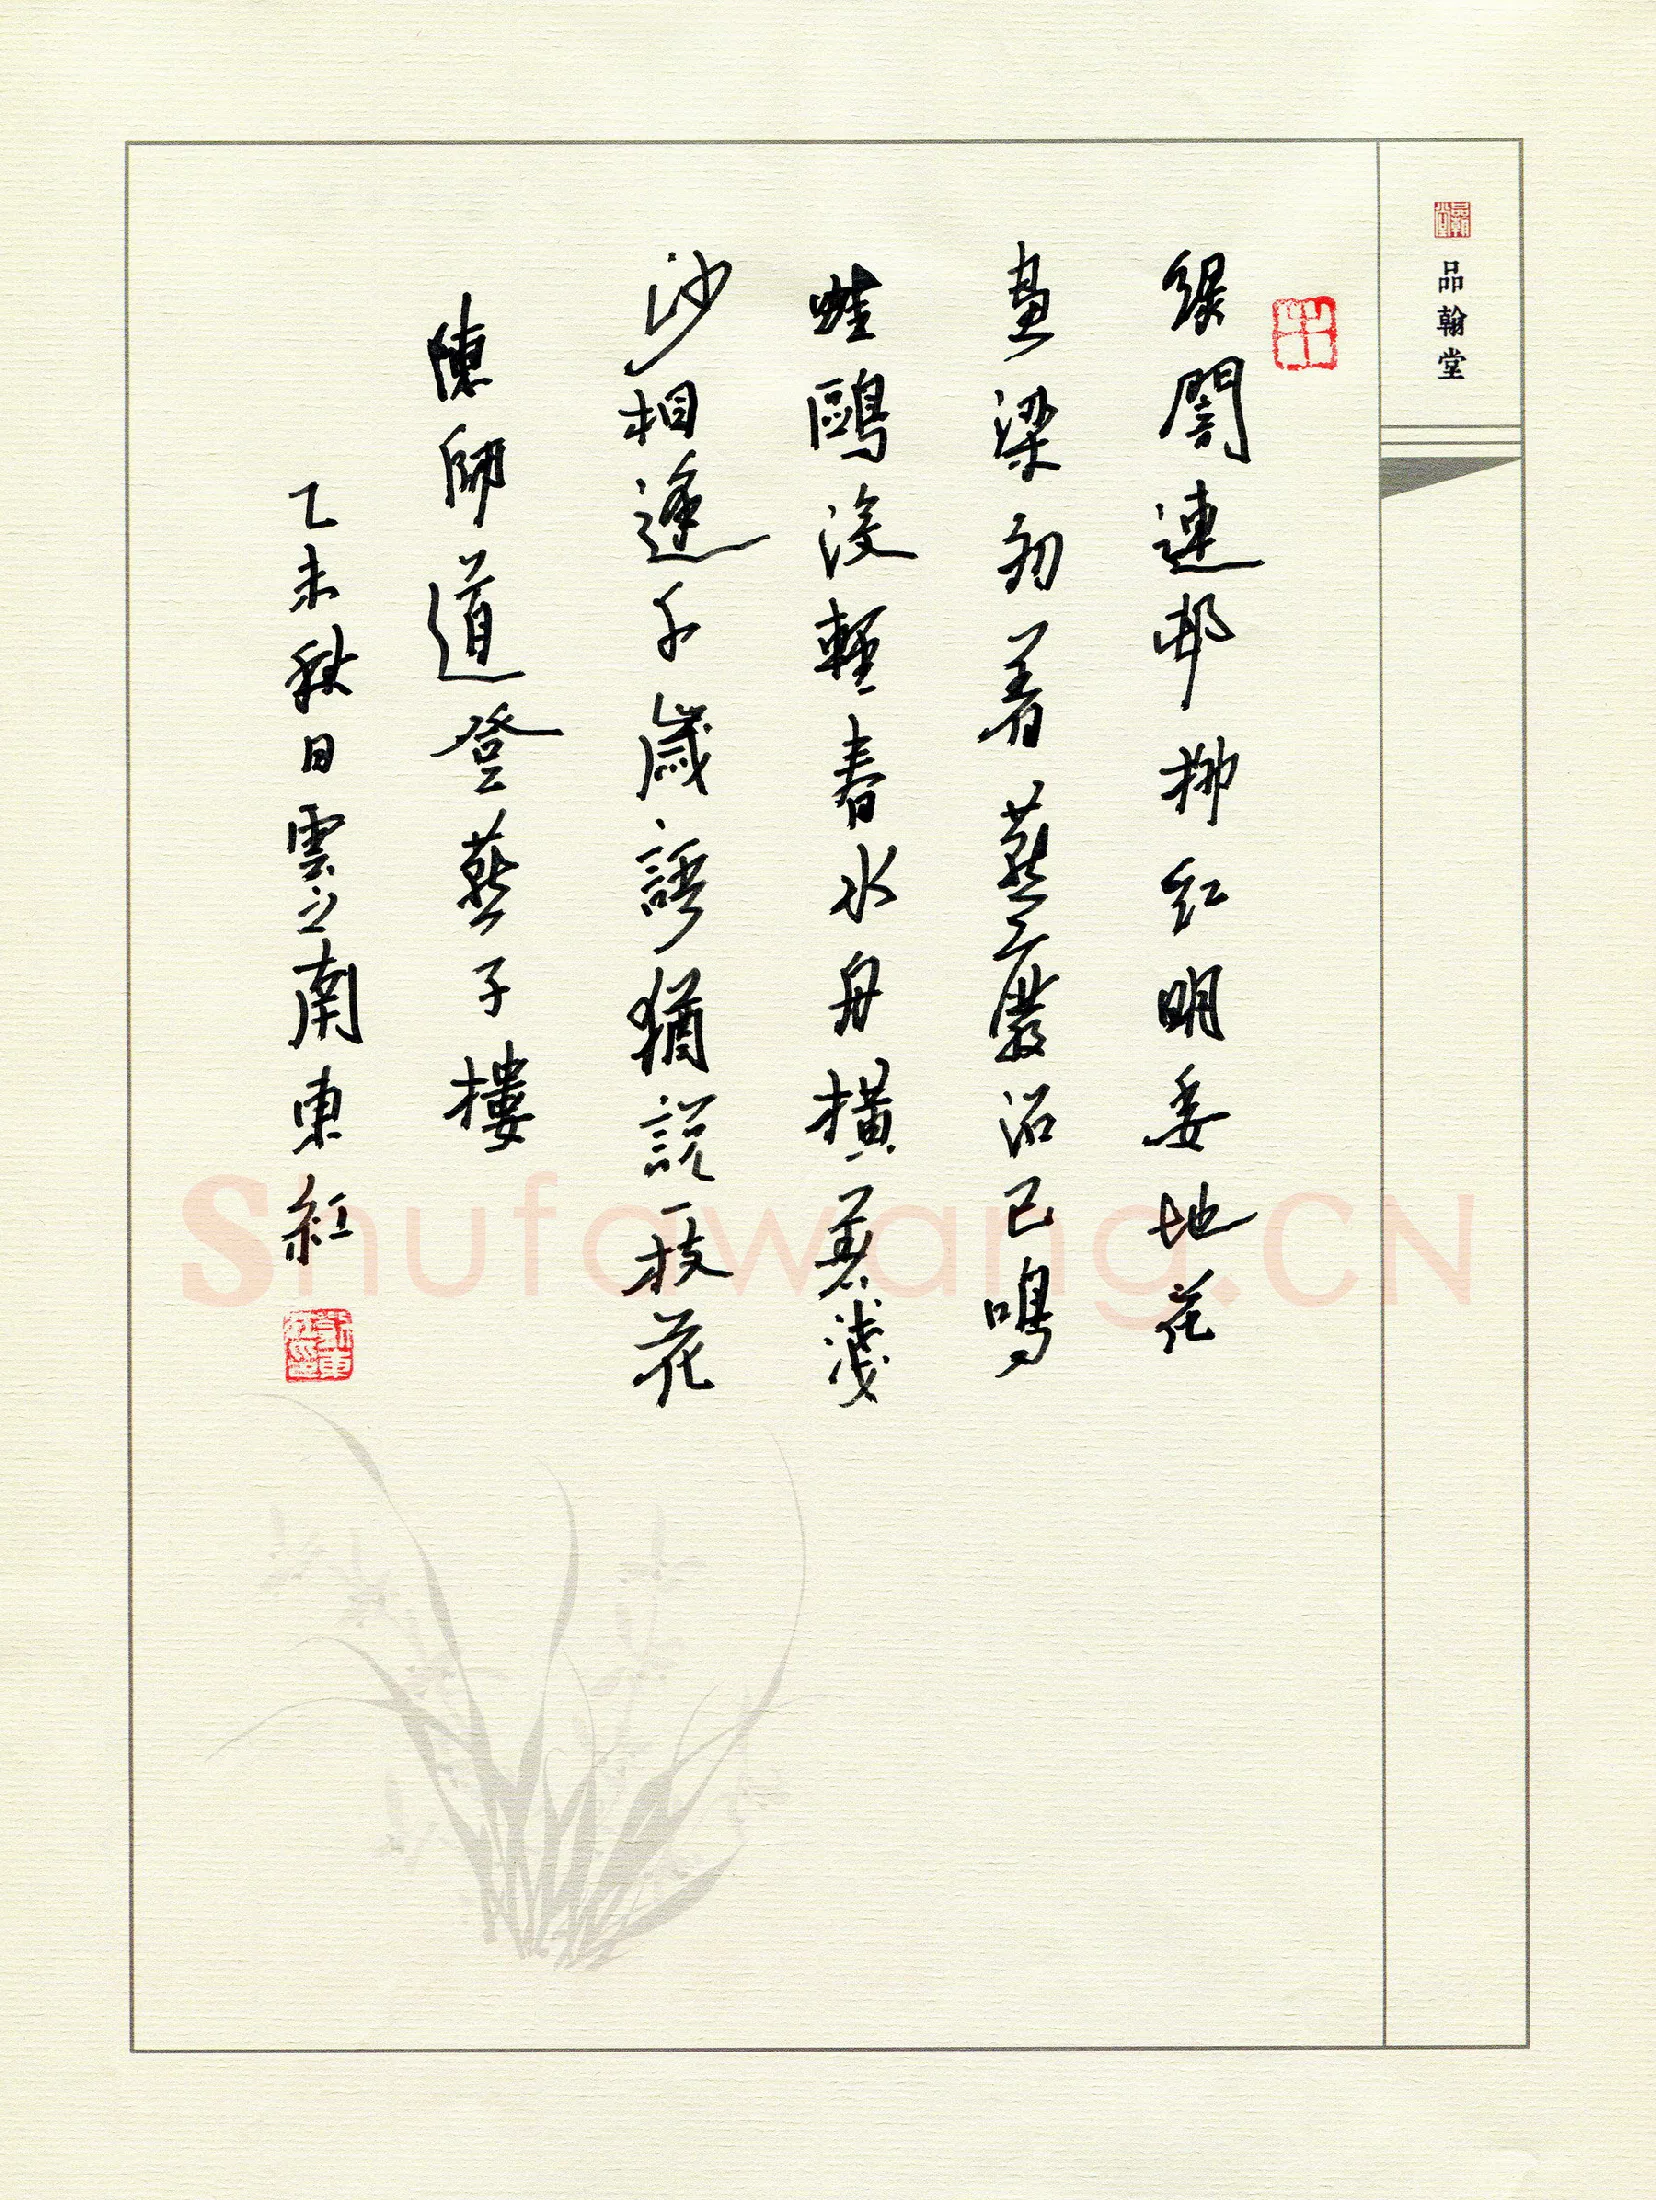 品翰堂
綠闇連邨柳紅明委地花
畫梁初着燕廢沼已鳴
蛙鷗沒輕春水舟橫着淺
沙相逢千歲語猶說一枝花
陳師道登燕子樓
乙未秋日雲之南東紅
Shufawang.CN